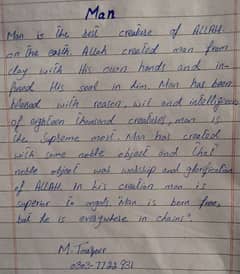 Man
Man is the best creature of ALLAH
on the earth. Allah created man from
clay with His own hands and in-
fused His soul in him. Man has been
blessed with reason, will and intelligence
of eighteen thousand creatures, man is
the Supreme most. Man has created
with some noble object and that
noble object was worship and glorification
of ALLAH. In his creation man is
superior to angels. "Man is born free,
but he is everywhere in chains".
M.
0303-7722931